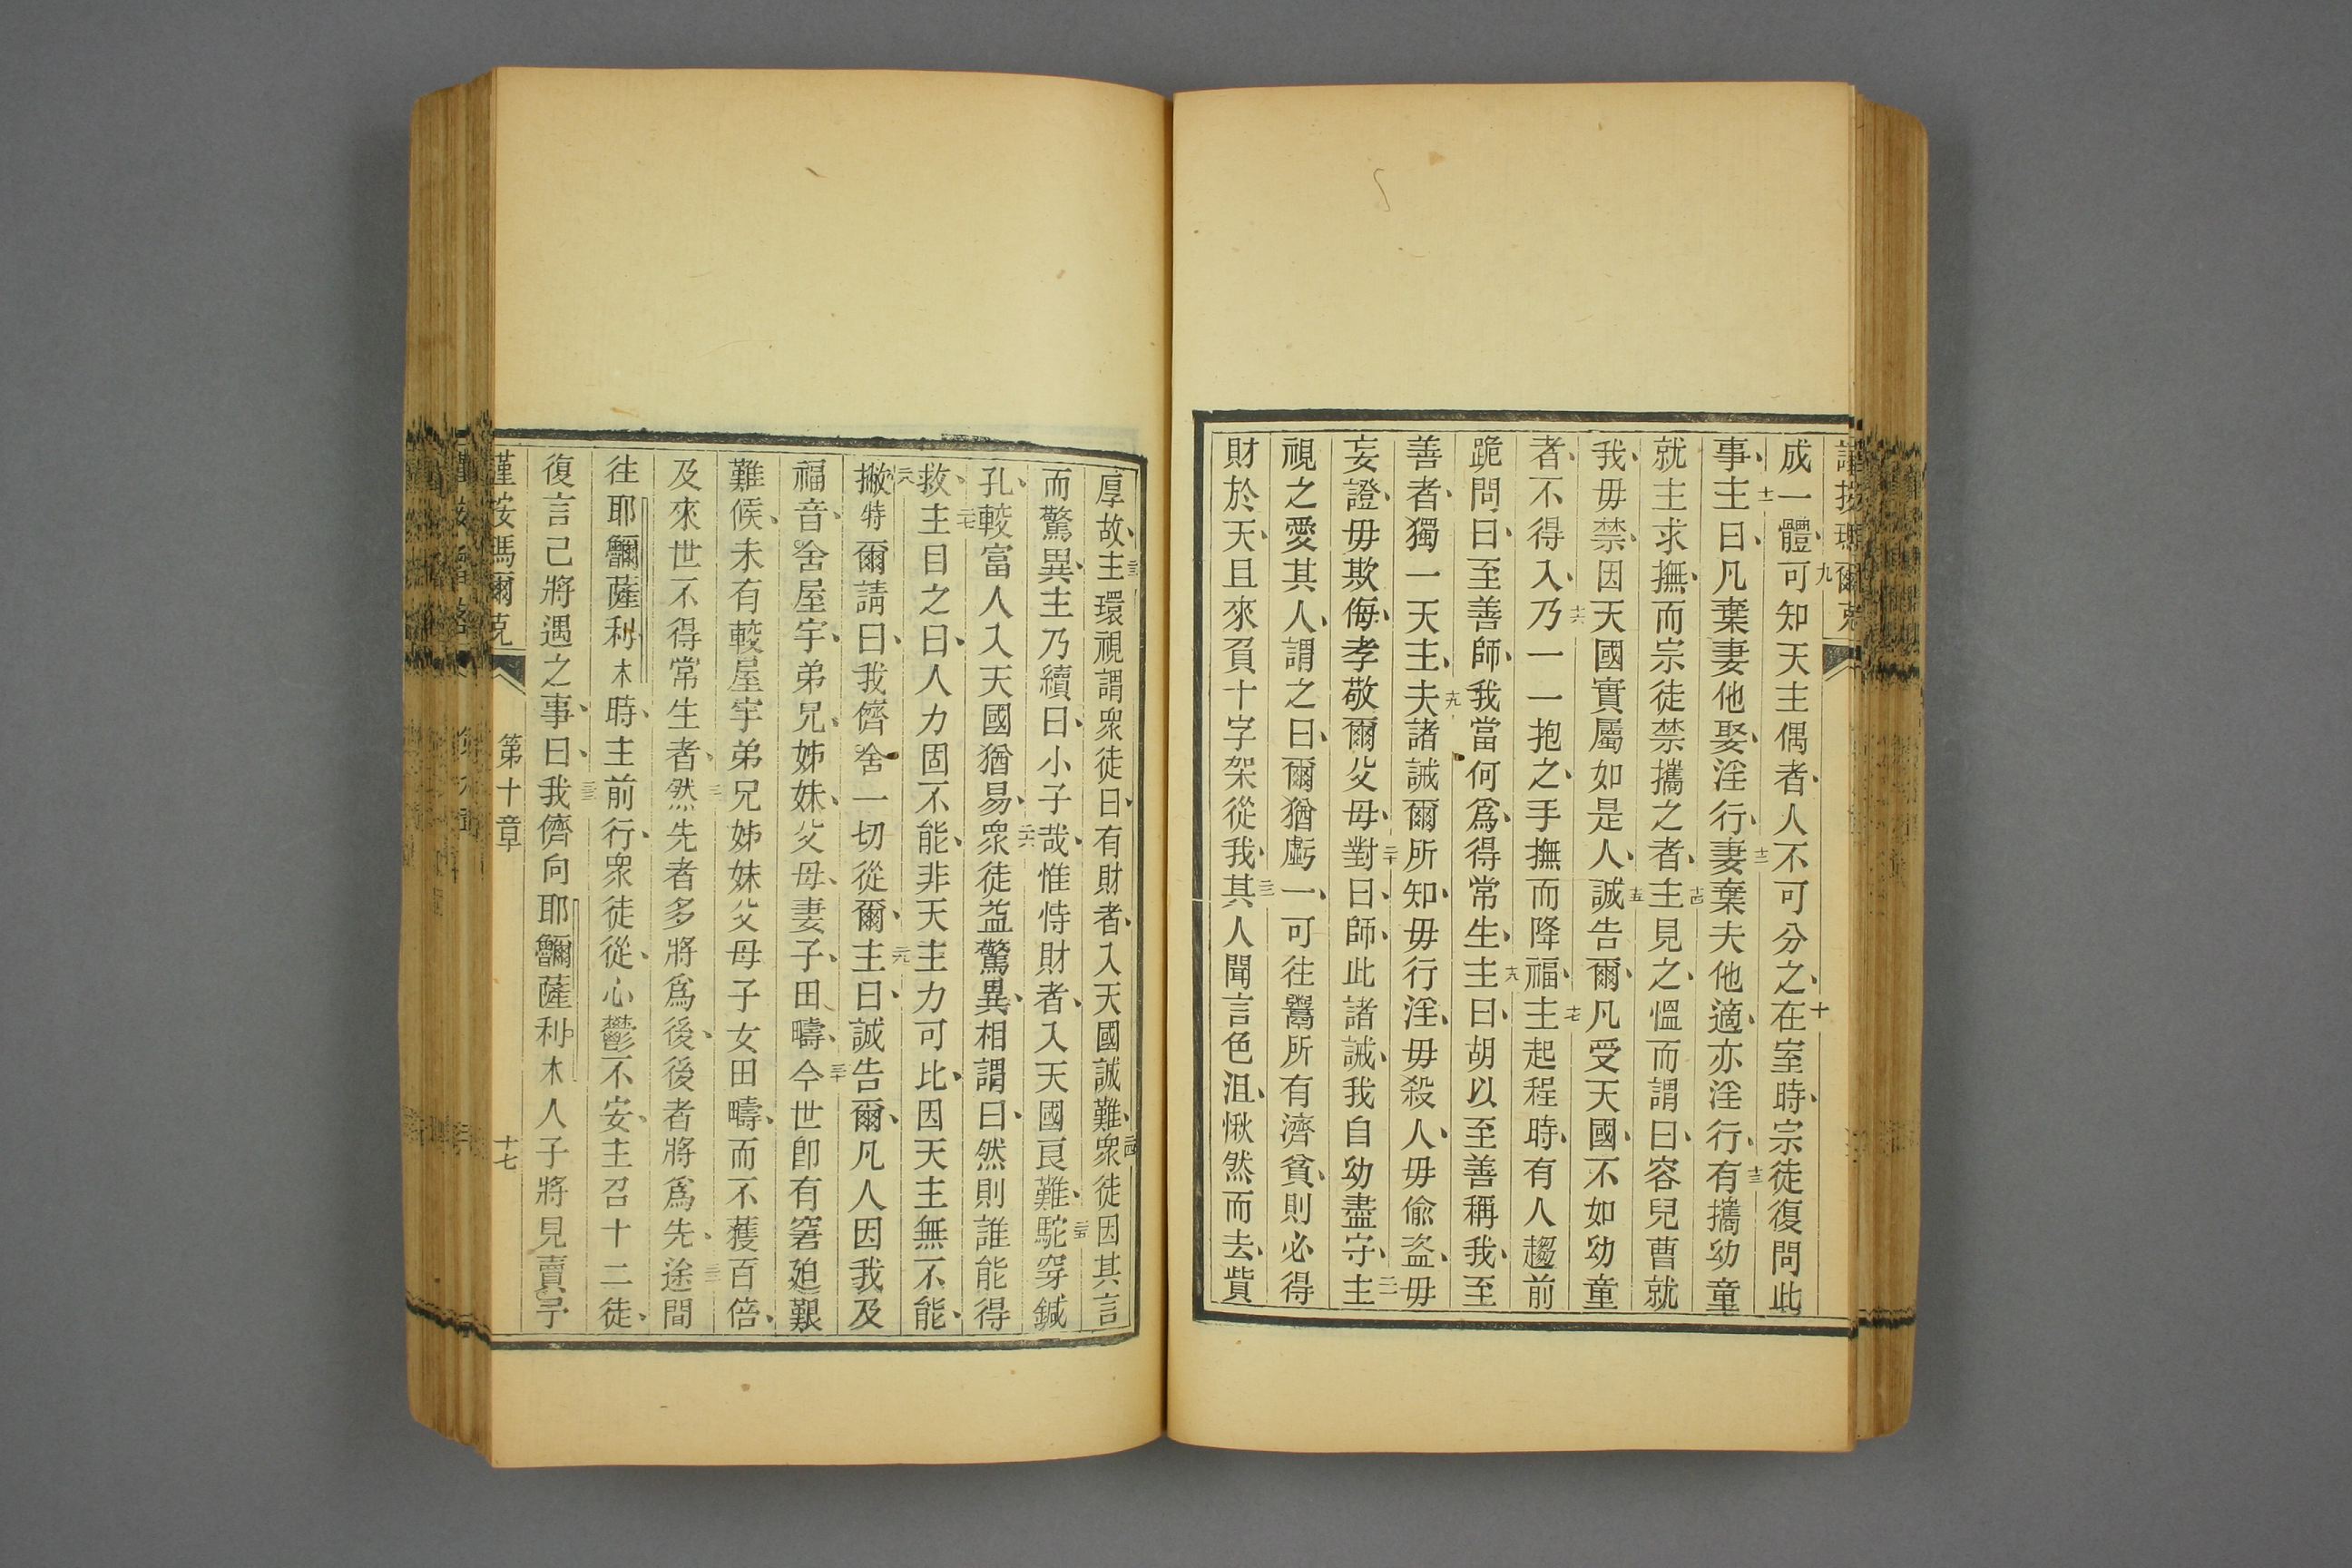 謹按瑪爾克
成一體、九可知天主偶者、人不可分之、十在室時、宗徒復問此
事、十一主曰、凡棄妻他娶、淫行、十二妻棄夫他適、亦淫行、十三有攜幼童
就主求撫、而宗徒禁攜之者、十四主見之、慍而謂曰、容兒曹就
我、毋禁、因天國實屬如是人、十五誠告爾、凡受天國、不如幼童
者、不得入、十六乃一一抱之、手撫而降福、十七主起程時、有人趨前
跪問曰、至善師、我當何為、得常生、十八主曰、胡以至善稱我、至
善者、獨一天主、十九夫諸誡爾所知、毋行淫、毋殺人、毋偷盜、毋
妄證、毋欺侮、孝敬爾父母、二十對曰、師、此諸誡、我自幼盡守、二一主
視之愛其人、謂之曰、爾猶虧一、可往鬻所有濟貧、則必得
財於天、且來負十字架從我、二二其人聞言色沮、愀然而去、貲
厚故、二三主環視謂眾徒曰、有財者、入天國誠難、二四眾徒因其言
而驚異、主乃續曰、小子哉、惟恃財者、入天國良難、二五駝穿鍼
孔、較富人入天國猶易、二六眾徒益驚異、相謂曰、然則誰能得
救、二七主目之曰、人力固不能、非天主力可比、因天主無不能、
二八撇特爾請曰、我儕舍一切從爾、二九主曰、誠告爾、凡人因我及
福音、舍屋宇、弟兄、姊妹、父母、妻子、田疇、三十今世即有窘廹艱
難候、未有較屋宇弟兄姊妹父母子女田疇、而不獲百倍、
及來世不得常生者、三一然先者多將為後、後者將為先、三二途間
往耶𬺈薩利木時、主前行、眾徒從、心鬱不安、主召十二徒、
復言己將遇之事、曰、三三我儕向耶𬺈薩利木人子將見賣予
謹按瑪爾克 第十章 十七